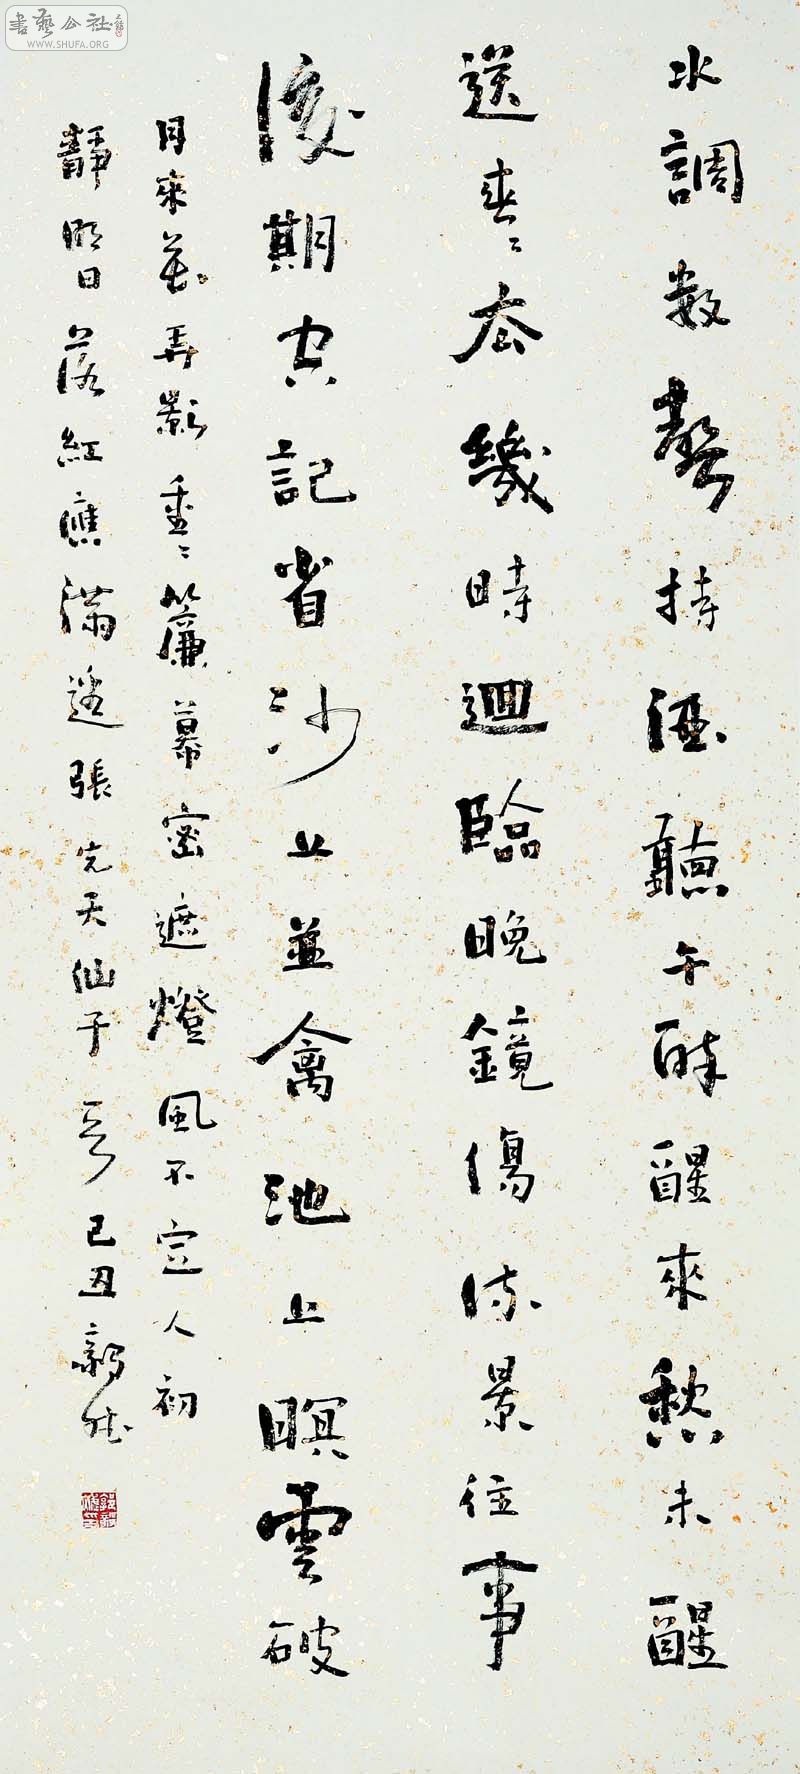 書藝公社
WWW.SHUFA.ORG
水調数聲持酒聽午醉醒來愁未醒
送春〻去幾時迴臨晚鏡傷流景往事
後期空記省沙上並禽池上暝雲破
月來花弄影重〻簾幕密遮燈風不定人初
靜明日落紅應滿逕張先天仙子一首己丑